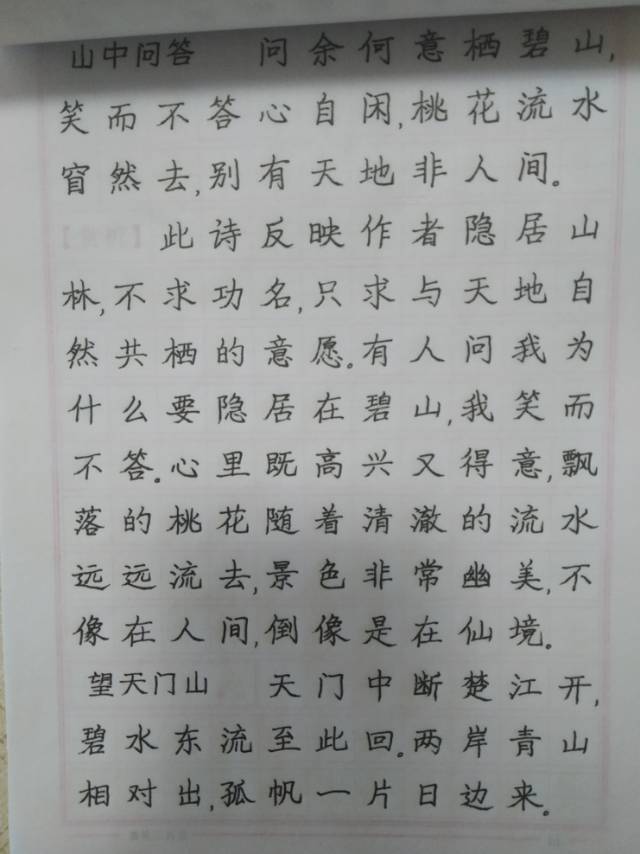 山中问答 问余何意栖碧山,
笑而不答心自闲,桃花流水
窅然去,别有天地非人间。
此诗反映作者隐居山
林,不求功名,只求与天地自
然共栖的意愿。有人问我为
什么要隐居在碧山,我笑而
不答。心里既高兴又得意,飘
落的桃花随着清澈的流水
远远流去,景色非常幽美,不
像在人间,倒像是在仙境。
望天门山 天门中断楚江开,
碧水东流至此回。两岸青山
相对出,孤帆一片日边来。